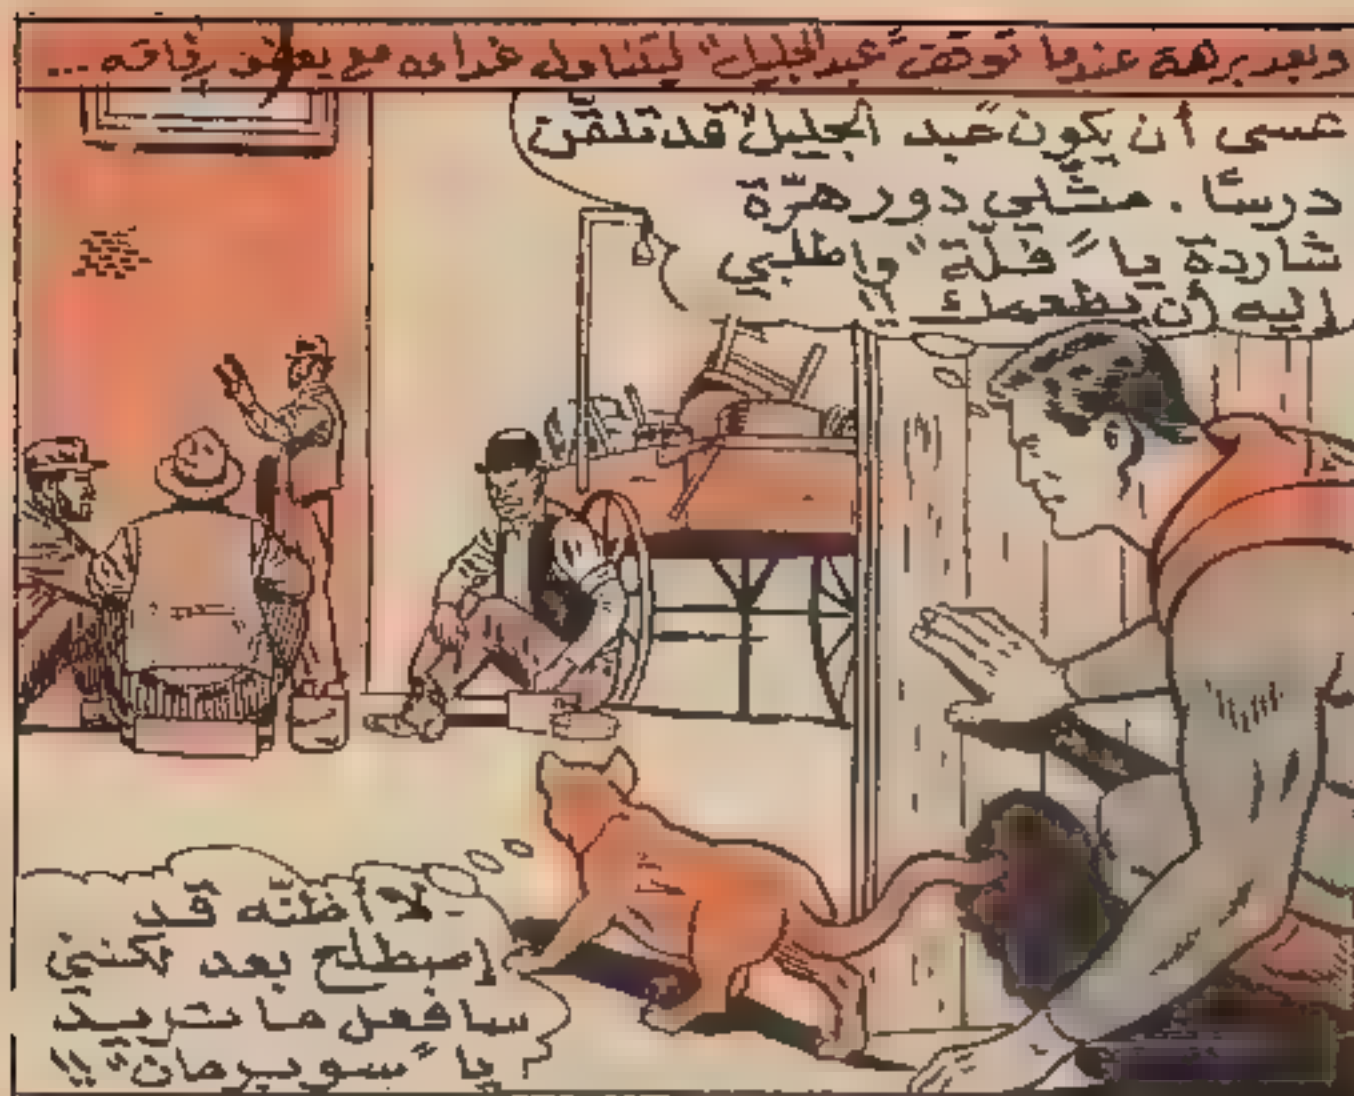 وبعد برهة عندما توقف "عبد الجليل" ليتناول غداءه مع بعض رفاقه...
عسى أن يكون "عبد الجليل" قد تلقّن
درسًا. مثّلي دور هرّة
شاردة يا "فلّة" واطلبي
إليه أن يطعمك !!
- لا أظنّه قد
إصطلح بعد لكنني
سأفعل ما تريد
يا "سوبرمان" !!